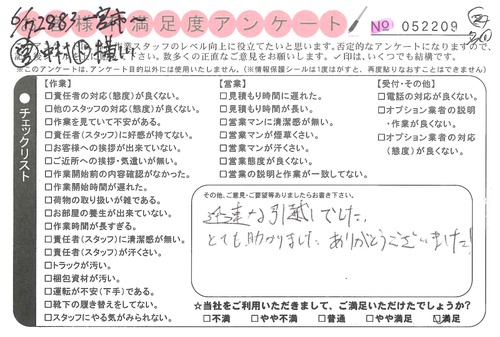 様満足度アンケート
No 052209
業スタッフのレベル向上に役立てたいと思います。否定的なアンケートになりますので、
お願いします。✓印は、いくつでも結構です。
※このアンケートは、アンケート目的以外には使用いたしません。(※情報保護シールは1度はがすと、再度貼りなおすことはできません)
チェックリスト
【作業】
□責任者の対応(態度)が良くない。
□他のスタッフの対応(態度)が良くない。
□作業を見ていて不安がある。
□責任者(スタッフ)に好感が持てない。
□お客様への挨拶が出来ていない。
□ご近所への挨拶・気遣いが無い。
□作業開始前の内容確認がなかった。
□作業開始時間が遅れた。
□荷物の取り扱いが雑である。
□お部屋の養生が出来ていない。
□作業時間が長すぎる。
□責任者(スタッフ)に清潔感が無い。
□責任者(スタッフ)が汗くさい。
□トラックが汚い。
□梱包資材が汚い。
□運転が不安(下手)である。
□靴下の履き替えをしてない。
□スタッフにやる気がみられない。
【営業】
□見積もり時間に遅れた。
□見積もり時間が長い。
□営業マンに清潔感が無い。
□営業マンが煙草くさい。
□営業マンが汗くさい。
□営業態度が良くない。
□営業の説明と作業が一致してない。
【受付・その他】
□電話の対応が良くない。
□オプション業者の説明
・作業が良くない。
□オプション業者の対応
(態度)が良くない。
その他、ご意見・ご要望等ありましたらお書き下さい。
迅速な引越しでした。
とても助かりました ありがとうございました!
☆当社をご利用いただきまして、ご満足いただけたでしょうか?
□不満 □やや不満 □普通 □やや満足 ☑満足